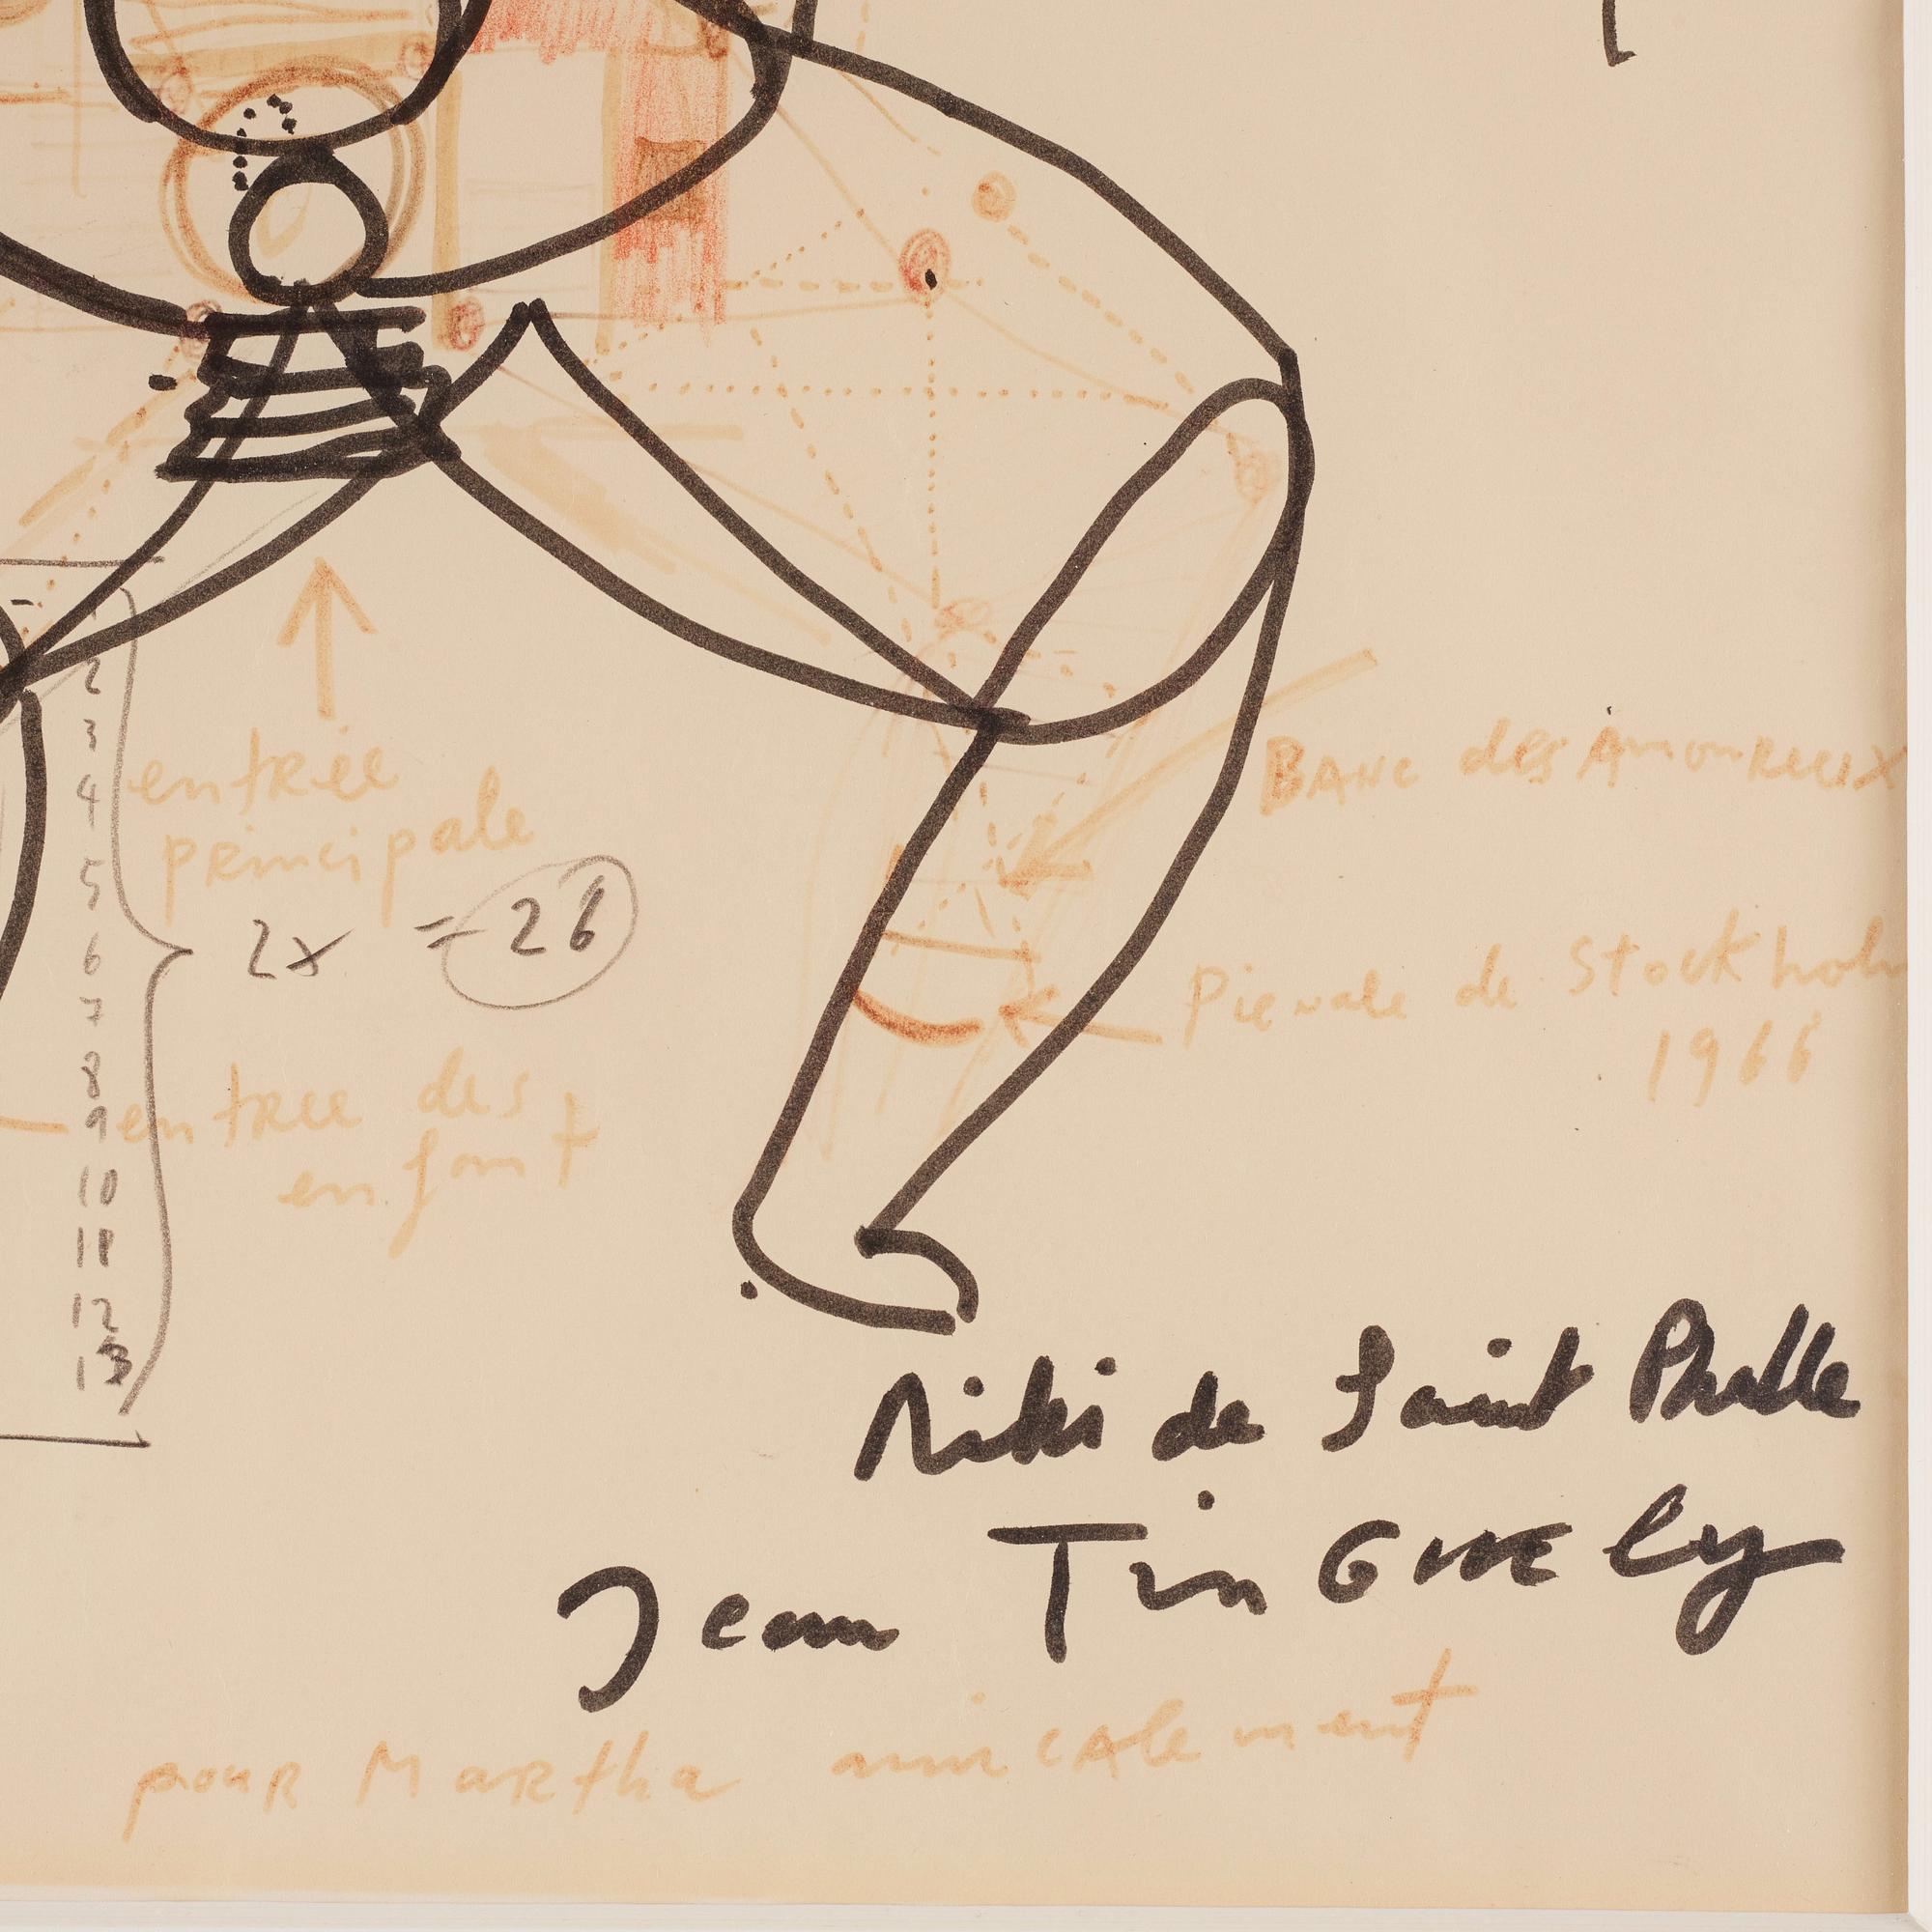 2
3
4
5
6
7
8
9
10
11
12
13
entrée
principale
2x = 26
entree des
enfant
Banc des Amoureux
de Stockholm
1966
Niki de Saint Phalle
Jean TinGuEly
pouR MaRtha amicAlement